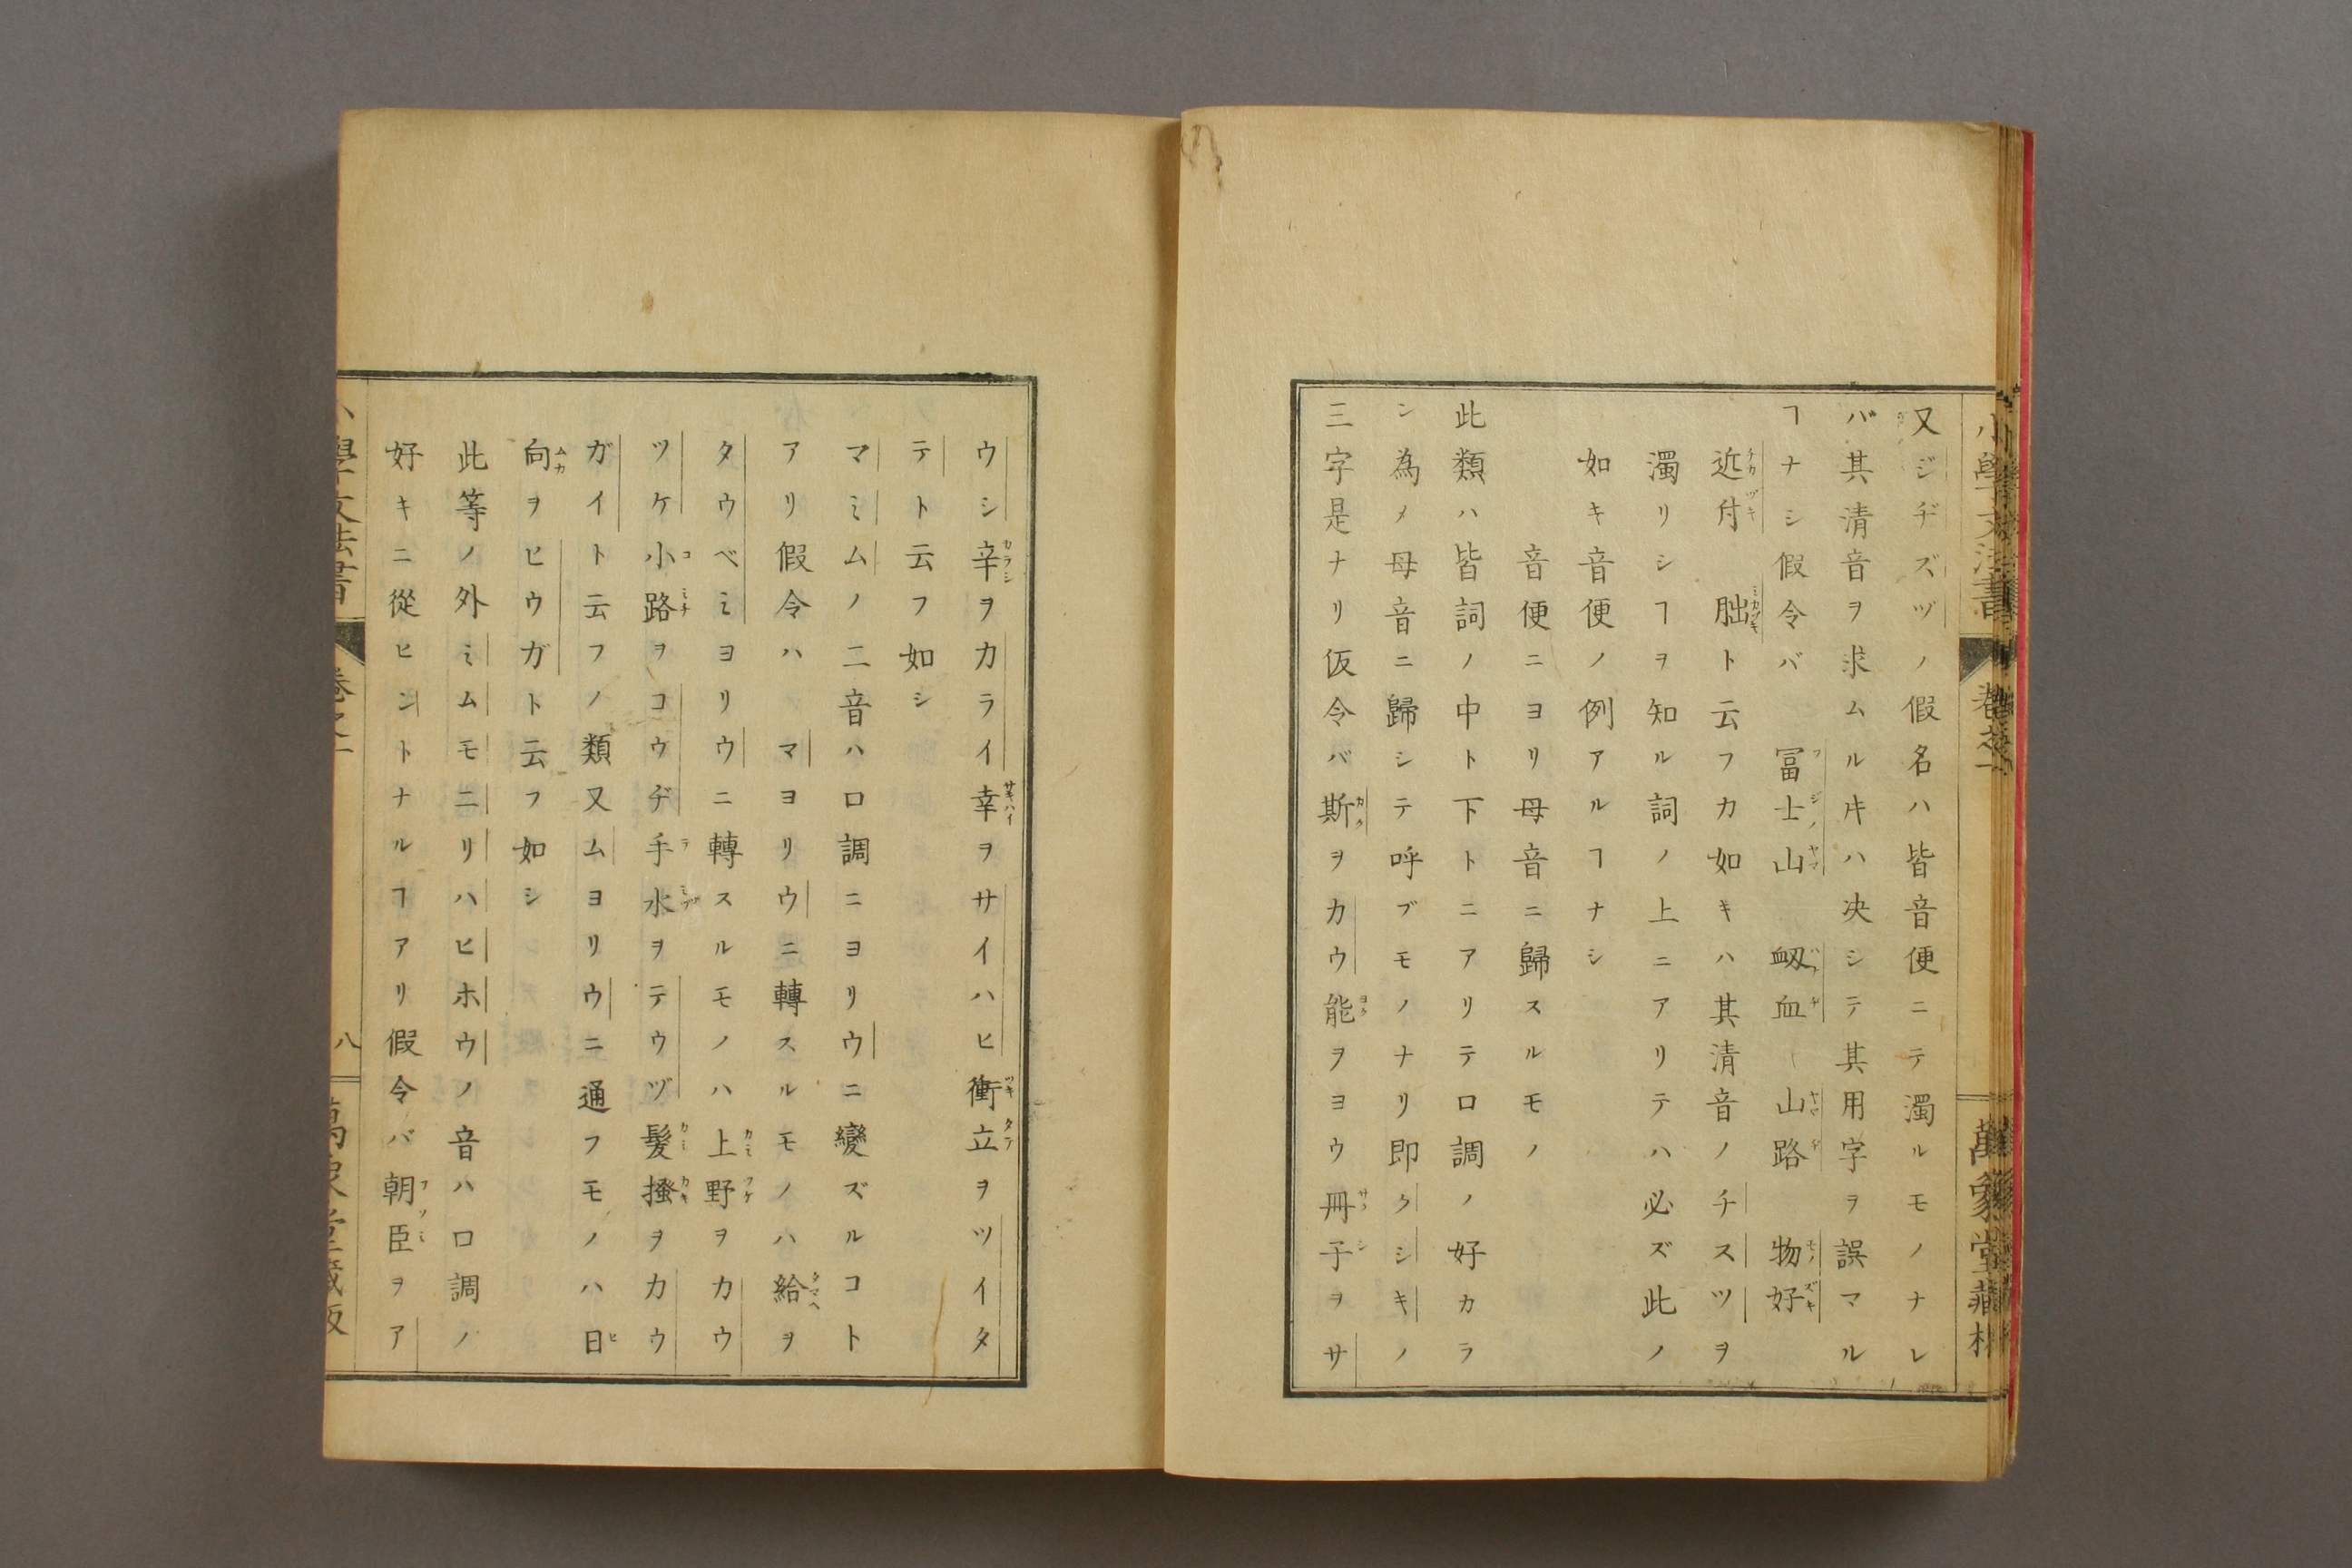 又ジヂズヅノ假名ハ皆音便ニテ濁ルモノナレ
バ其清音ヲ求ムル𪜈ハ决シテ其用字ヲ誤マル
ヿナシ假令バ 冨士山 衂血 山路 物好
近付 朏ト云フカ如キハ其清音ノチスツヲ
濁リシヿヲ知ル詞ノ上ニアリテハ必ズ此ノ
如キ音便ノ例アルヿナシ
音便ニヨリ母音ニ歸スルモノ
此類ハ皆詞ノ中ト下トニアリテ口調ノ好カラ
ン為メ母音ニ歸シテ呼ブモノナリ即クシキノ
三字是ナリ仮令バ斯ヲカウ能ヲヨウ冊子ヲサ
ウシ辛ヲカライ幸ヲサイハヒ衝立ヲツイタ
テト云フ如シ
マミムノ二音ハ口調ニヨリウニ變ズルコト
アリ假令ハ マヨリウニ轉スルモノハ給ヲ
タウベミヨリウニ轉スルモノハ上野ヲカウ
ツケ小路ヲコウヂ手水ヲテウヅ髮搔ヲカウ
ガイト云フノ類又ムヨリウニ通フモノハ日
向ヲヒウガト云フ如シ
此等ノ外ミムモニリハヒホウノ音ハ口調ノ
好キニ從ヒントナルヿアリ假令バ朝臣ヲア
小學文法書 卷之一 八 萬象堂藏版